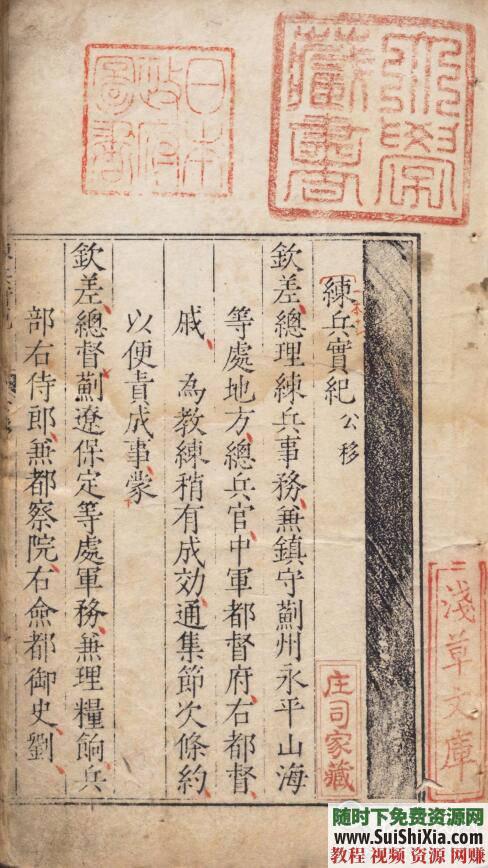 日本
政府
圖書
大學
藏書
練兵實紀 公移
欽差總理練兵事務兼鎮守薊州永平山海
等處地方總兵官中軍都督府右都督
戚 為教練稍有成効通集節次條約
以便責成事蒙
欽差總督薊遼保定等處軍務兼理糧餉兵
部右侍郎兼都察院右僉都御史劉
淺草文庫
庄司家藏
随时下免费资源网
www.SuiShiXia.com
教程 视频 资源 网赚